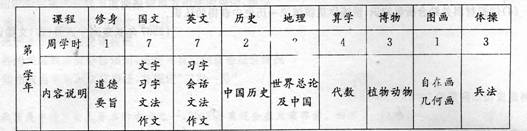 第一学年
课程 修身 国文 英文 历史 地理 算学 博物 图画 体操
周学时 1 7 7 2 4 3 1 3
内容说明
道德
要旨
文字
习字
文法
作文
习字
会话
文法
作文
中国历史
世界总论
及中国
代数
植物动物
自在画
几何画
兵法